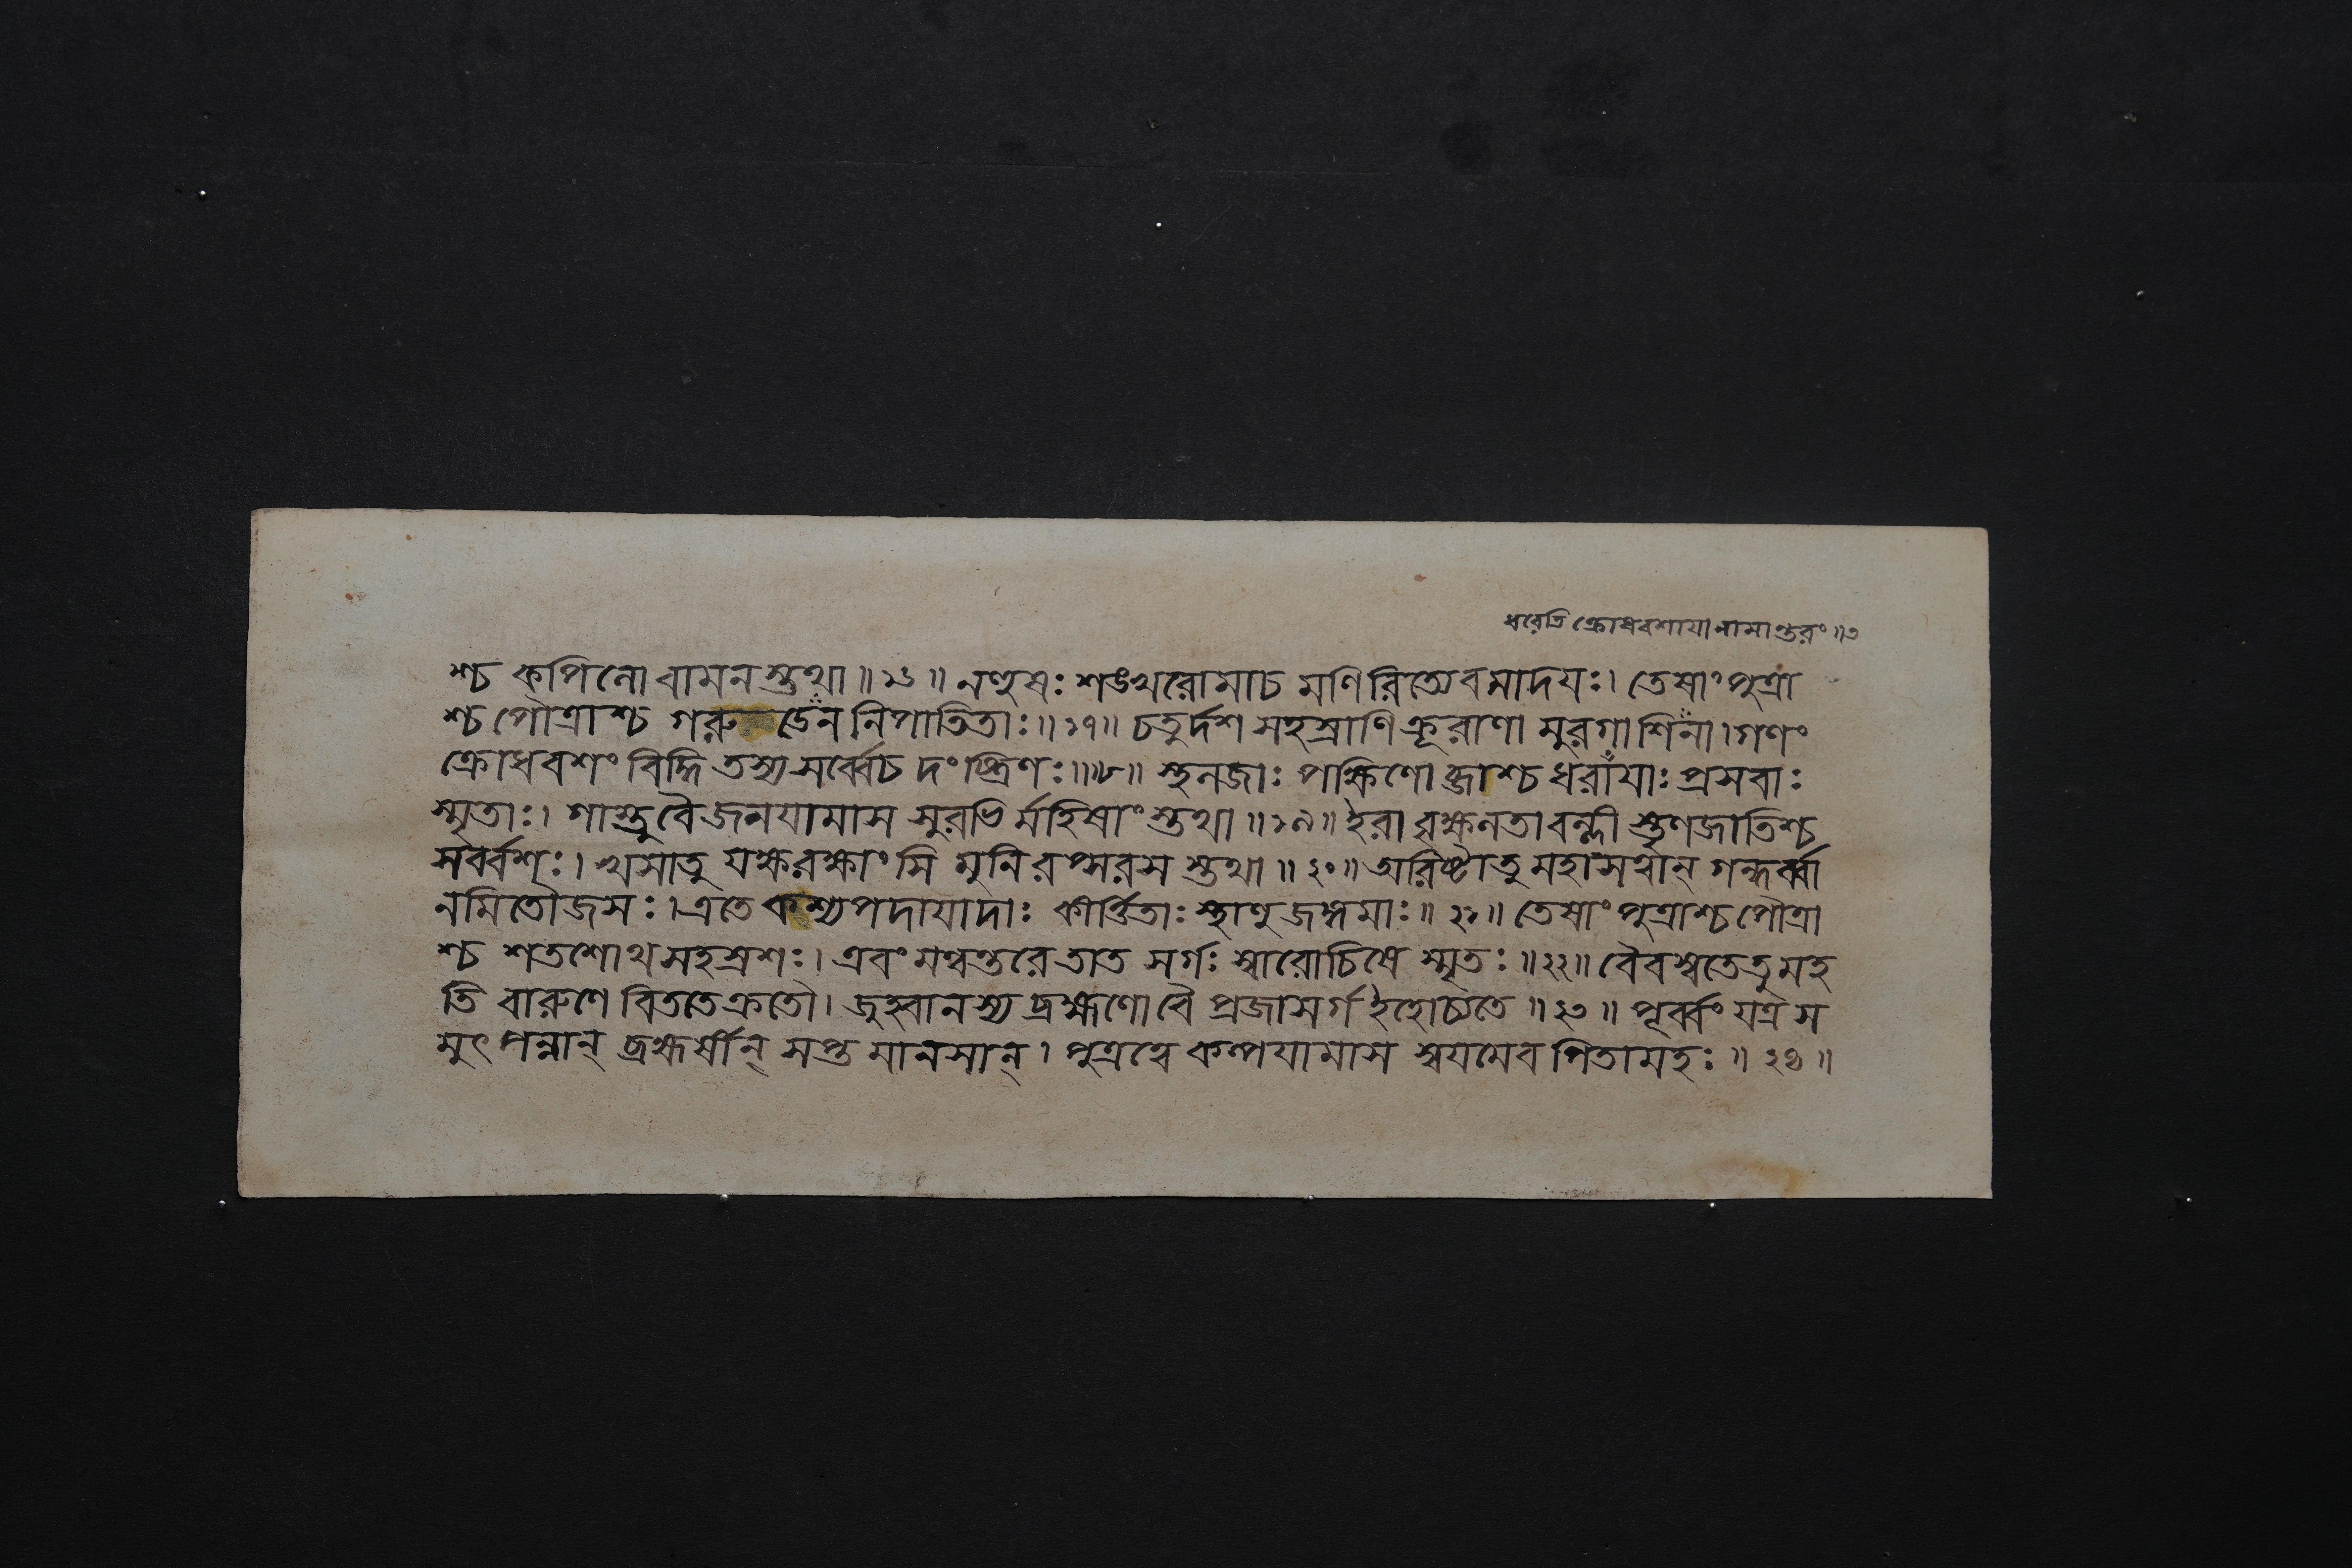 ধরেতি ক্রোধবশাযা নামান্তরং॥৩
শ্চ কপিনো বামনস্তুথা॥১৬॥ নণ্হুষঃ শঙখরোমাচ মণিরিত্যেবমাদযঃ। তেষাং পুত্রা
শ্চ পৌত্রাশ্চ গরুডেন নিপাতিতাঃ॥১৭॥ চতুর্দশ সহস্রাণি ক্রূরাণা মুরগাশিনা। গণং
ক্রোধবশং বিদ্ধি তস্য সর্ব্বেচ দংষ্ট্রিণঃ॥১৮॥ স্থনজাঃ পক্ষিণো ব্জাশ্চ ধরাযাঃ প্রসবাঃ
স্মৃতাঃ। গাস্তুবৈ জনযামাস সুরভি র্মহিষাং স্তথা॥১৯॥ ইরা বৃক্ষনতাবল্লী স্তৃণজাতিশ্চ
সর্ব্বশঃ। খসাতু যক্ষরক্ষাংসি মুনি রপ্সরস স্তথা॥২০॥ অরিষ্টাতু মহাসত্বান্ গন্ধর্ব্বা
নমিতৌজসঃ। এতে কশ্যপদাযাদাঃ কীর্ত্তিতাঃ স্থাণুজঙ্গমাঃ॥২১॥ তেষাং পুত্রাশ্চ পৌত্রা
শ্চ শতশোথ সহস্রশঃ। এবং মন্বন্তরে তাত সর্গঃ স্বারোচিষে স্মৃতঃ॥২২॥ বৈবস্বতেতু মহ
তি বারুণে বিততেক্রতৌ। জুহ্বানস্য ব্রহ্মণো বৈ প্রজাসর্গ ইহোচ্যতে॥২৩॥ পূর্ব্বং যত্র স
মুৎপন্নান্ ব্রহ্মর্ষীন্ সপ্ত মানসান্। পুত্রত্বে কল্পযামাস স্বযমেব পিতামহঃ॥২৪॥